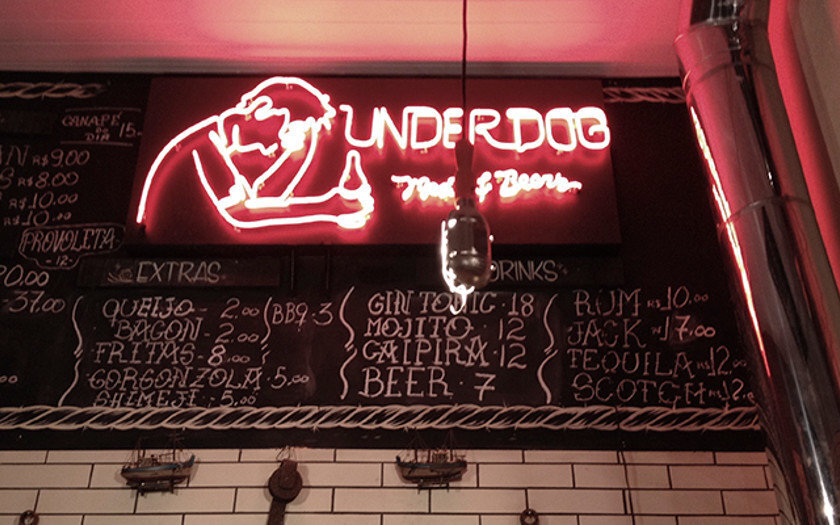 CANAPÉ
DO
DIA 15.
R$9.00
R$8.00
R$10.00
R$10.00
PROVOLETA
-12-
37.00
UNDERDOG
Meat & Beers
EXTRAS
QUEIJO - 2.00
BACON - 2.00
FRITAS - 8.00
GORGONZOLA - 5.00
SHIMEJI - 5.00
BBQ - 3
DRINKS
GIN TONIC - 18
MOJITO - 12
CAIPIRA - 12
BEER - 7
RUM R$10.00
JACK R$17.00
TEQUILA R$12.00
SCOTCH R$12.